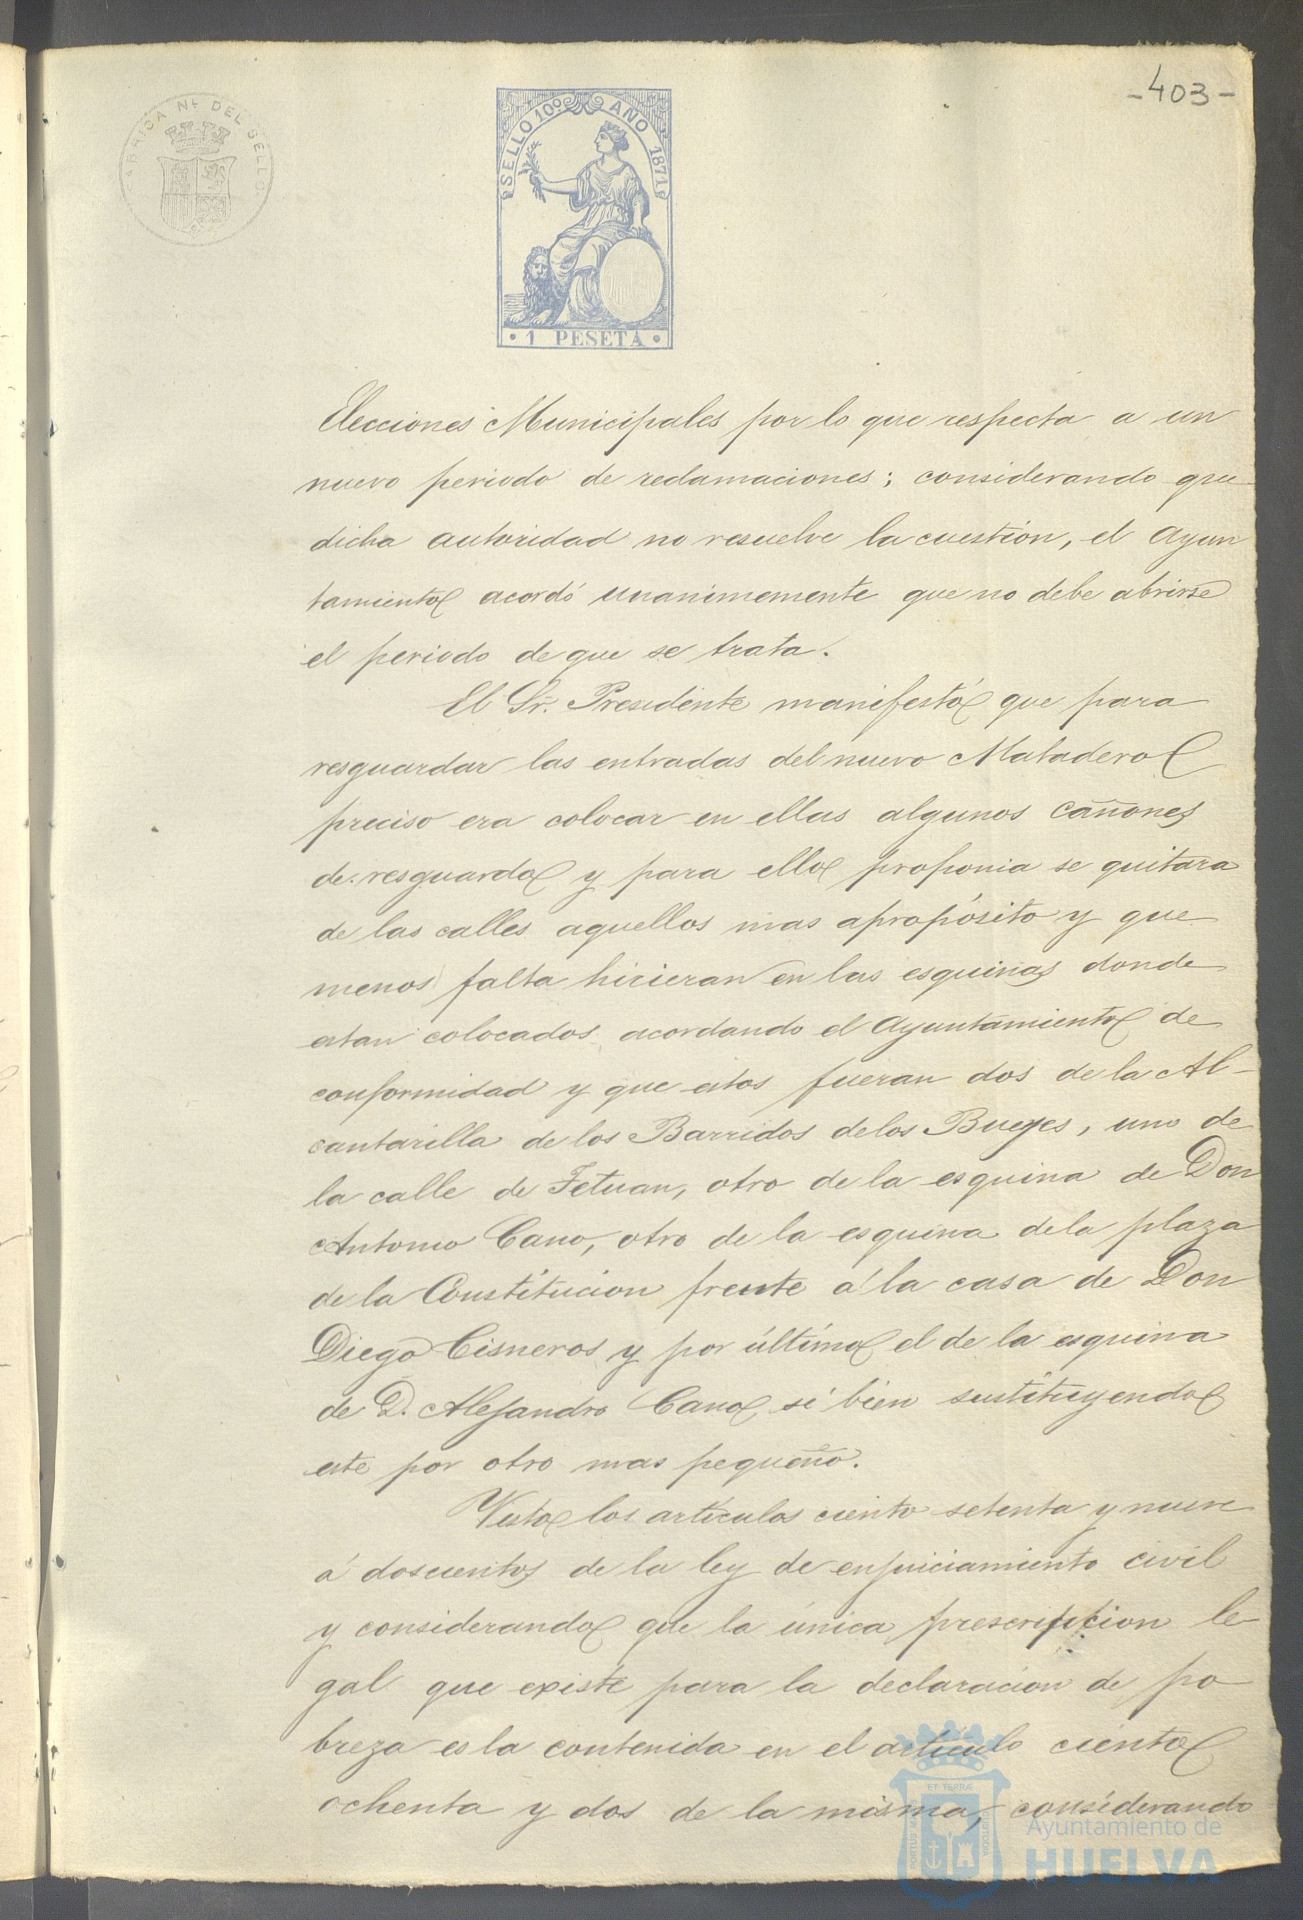 -403-
FABRICA NL. DEL SELLO
SELLO 10º AÑO 1871
1 PESETA
Elecciones Municipales por lo que respecta a un
nuevo periodo de reclamaciones; considerando que
dicha autoridad no resuelve la cuestión, el Ayun
tamiento acordó unanimemente que no debe abrirse
el periodo de que se trata.
El Sr. Presidente manifestó que para
resguardar las entradas del nuevo Matadero
preciso era colocar en ellas algunos cañones
de resguardo y para ello proponia se quitara
de las calles aquellos mas apropósito y que
menos falta hicieran en las esquinas donde
estan colocados acordando el Ayuntamiento de
conformidad y que estos fueran dos de la Al-
cantarilla de los Barridos de los Bueyes, uno de
la calle de Tetuan, otro de la esquina de Don
Antonio Cano, otro de la esquina de la plaza
de la Constitucion frente á la casa de Don
Diego Cisneros y por último el de la esquina
de D. Alejandro Cano si bien sustituyendo
este por otro mas pequeño.
Visto los artículos ciento setenta y nueve
á doscientos de la ley de enjuiciamiento civil
y considerando que la única prescripcion le-
gal que existe para la declaración de po
breza es la contenida en el artículo ciento
ochenta y dos de la misma, considerando
Ayuntamiento de
HUELVA